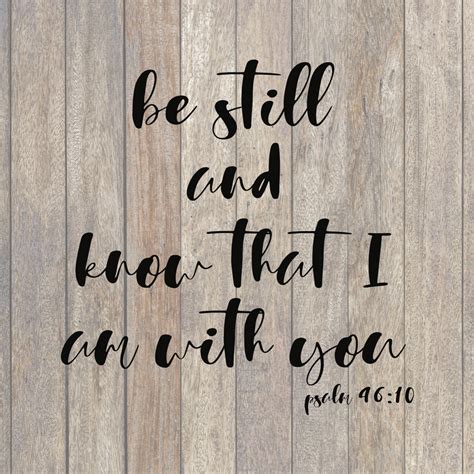 be still
and
know that I
am with you
psalm 96:10